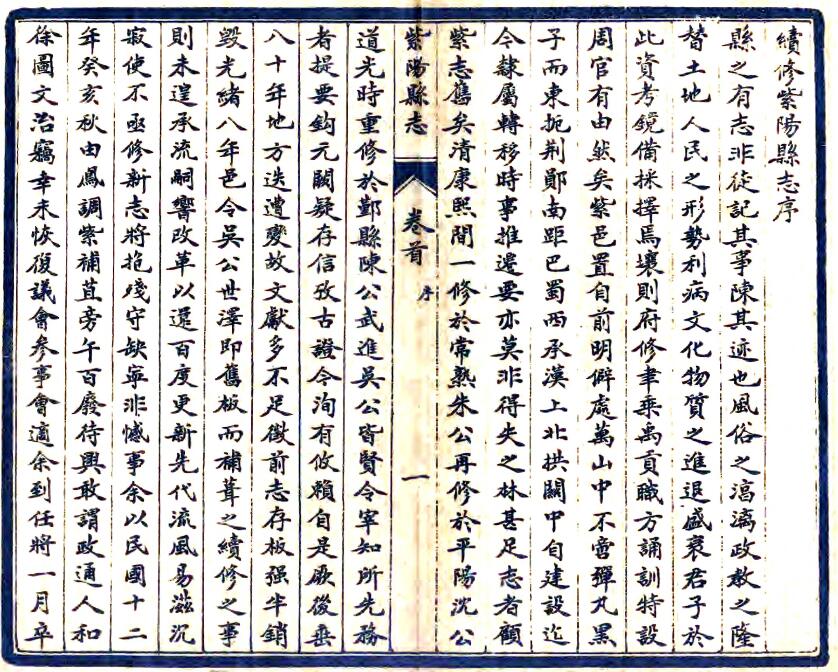 續修紫陽縣志序
縣之有志非徒記其事陳其迹也風俗之漓漓政教之隆
替土地人民之形勢利病文化物質之進退盛衰君子於
此資考鏡備採擇焉壤則府修聿乘禹貢職方誦訓特設
周官有由然矣紫邑置自前明僻處萬山中不啻彈丸黑
子而東扼荆鄖南距巴蜀西承漢上北拱關中自建設迄
今隸屬轉移時事推遷要亦莫非得失之林甚足志者顧
紫志舊矣清康熙間一修於常熟朱公再修於平陽沈公
紫陽縣志
卷首
序
一
道光時重修於鄞縣陳公武進吳公皆賢令宰知所先務
者提要鈎元闕疑存信攷古證今洵有攸賴自是厥後垂
八十年地方迭遭變故文獻多不足徵前志存板强半銷
毀光緒八年邑令吳公世澤即舊板而補葺之續修之事
則未遑承流嗣響改革以還百度更新先代流風易滋沉
寂使不亟修新志將抱殘守缺寧非憾事余以民國十二
年癸亥秋由鳳調紫補苴旁午百廢待興敢謂政通人和
徐圖文治竊幸未恢復議會參事會適余到任將一月卒